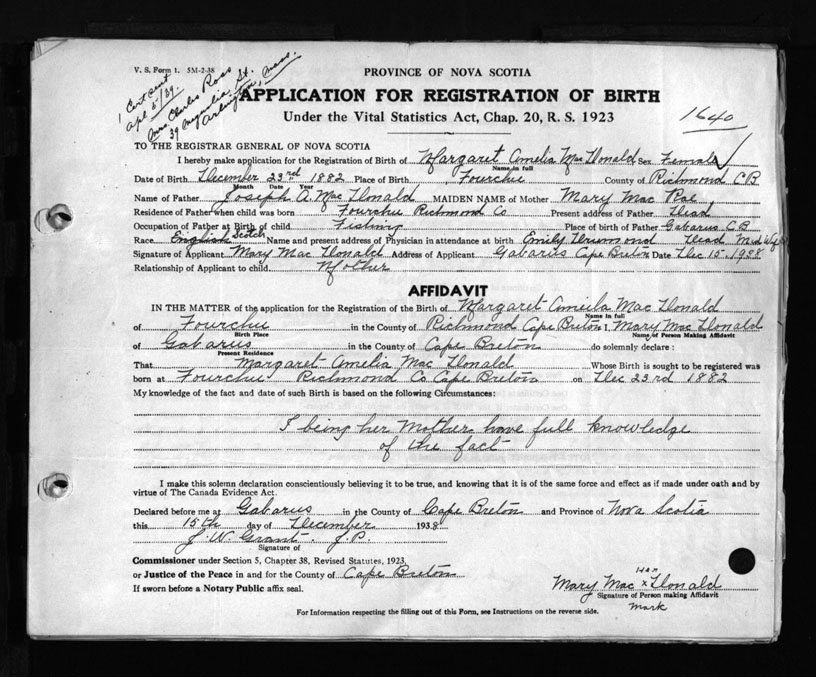 V. S. Form 1. 5M-2-38
1 Cert sent
Apl 5/39.
Mrs. Charles Ross
39 Magnolia St.
Arlington, Mass.
PROVINCE OF NOVA SCOTIA
APPLICATION FOR REGISTRATION OF BIRTH
Under the Vital Statistics Act, Chap. 20, R. S. 1923
1640
TO THE REGISTRAR GENERAL OF NOVA SCOTIA
I hereby make application for the Registration of Birth of Margaret Amelia MacDonald Sex Female
Name in full
Date of Birth December 23rd 1882 Place of Birth Fourchu County of Richmond CB
Month Date Year
Name of Father Joseph A. MacDonald MAIDEN NAME of Mother Mary Mac Rae
Residence of Father when child was born Fourchu Richmond Co Present address of Father Dead
Occupation of Father at Birth of child Fishing Place of birth of Father Gabarus CB
Race English Scotch Name and present address of Physician in attendance at birth Emily Drumond Dead Mid Wife
Signature of Applicant Mary Mac Donald Address of Applicant Gabarus Cape Breton Date Dec 15, 1938
Relationship of Applicant to child Mother
AFFIDAVIT
IN THE MATTER of the application for the Registration of the Birth of Margaret Ameila Mac Donald
Name in full
of Fourchu in the County of Richmond Cape Breton I, Mary Mac Donald
Birth Place Name of Person Making Affidavit
of Gabarus in the County of Cape Breton do solemnly declare:
Present Residence
That Margaret Amelia Mac Donald Whose Birth is sought to be registered was
born at Fourchu Richmond Co Cape Breton on Dec 23rd 1882
My knowledge of the fact and date of such Birth is based on the following Circumstances:
I being her Mother have full knowledge
of the fact
I make this solemn declaration conscientiously believing it to be true, and knowing that it is of the same force and effect as if made under oath and by
virtue of The Canada Evidence Act.
Declared before me at Gabarus in the County of Cape Breton and Province of Nova Scotia
this 15th day of December 1938
J. W. Grant. J.P.
Signature of
Commissioner under Section 5, Chapter 38, Revised Statutes, 1923,
or Justice of the Peace in and for the County of Cape Breton
If sworn before a Notary Public affix seal.
her
Mary Mac x Donald
Signature of Person making Affidavit
mark
For Information respecting the filling out of this Form, see Instructions on the reverse side.